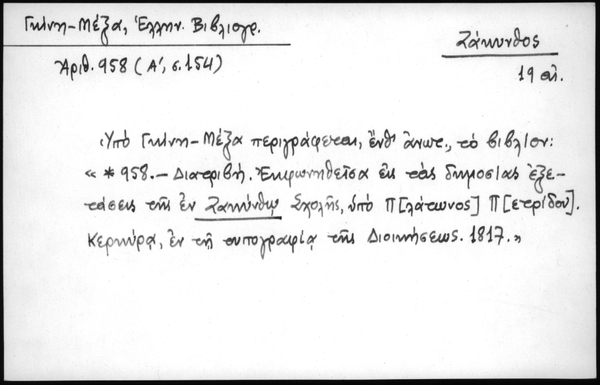 Γκίνη-Μέξα, Ἑλλην. Βιβλιογρ.
Ἀριθ. 958 (Α', σ. 154)
Ζάκυνθος
19 αἰ.
Ὑπό Γκίνη-Μέξα περιγράφεται, ἔνθ' ἀνωτ., τό βιβλίον:
« * 958.- Διατριβή. Ἐκφωνηθεῖσα εἰς τάς δημοσίας ἐξε-
τάσεις τῆς ἐν Ζακύνθῳ Σχολῆς, ὑπό Π[λάτωνος] Π[ετρίδου].
Κερκύρᾳ, ἐν τῇ τυπογραφίᾳ τῆς Διοικήσεως. 1817.»